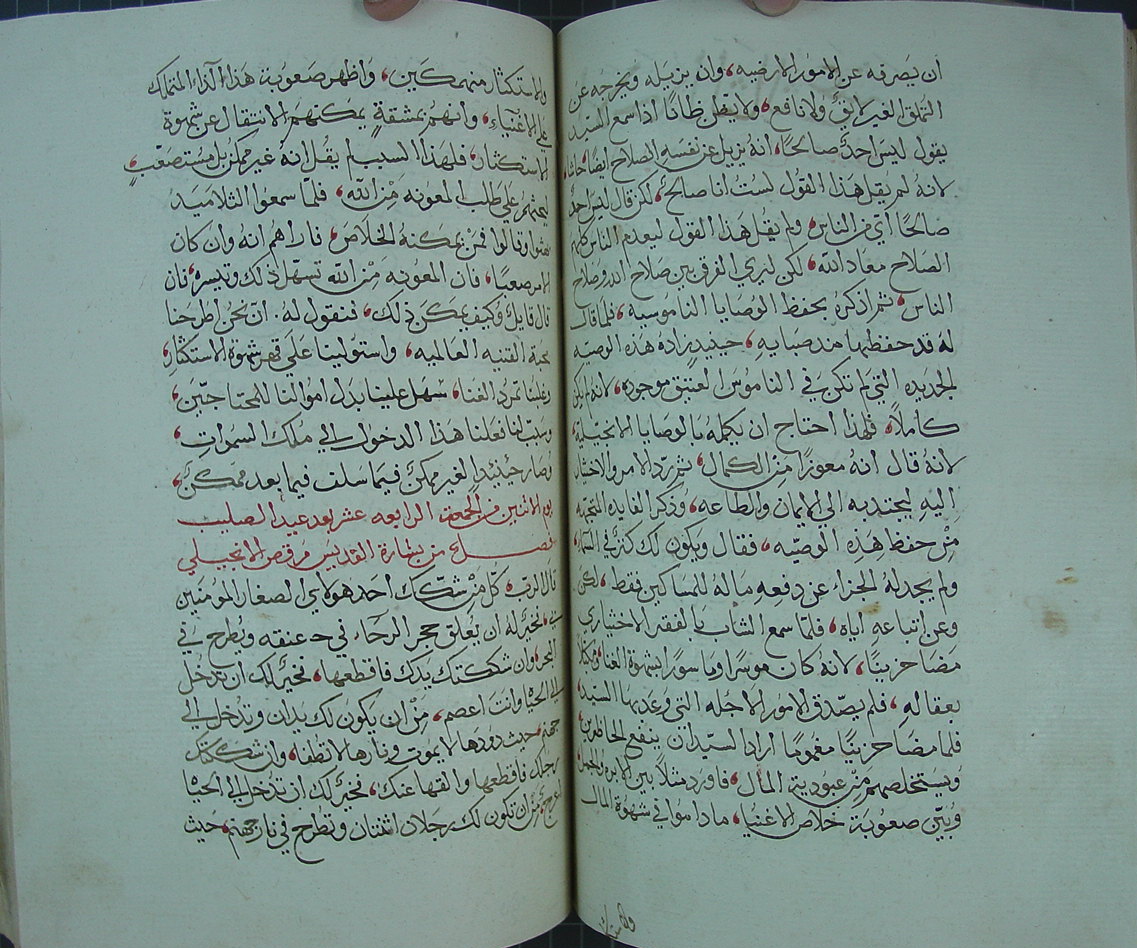 ان يصرفه عن الامور الارضيه، وان يزيله ويخرجه عن
التملق الغير لايق ولا نافع، ولا يظن ظانا اذا سمع السيد
يقول ليس احدٌ صالحًا، انه يزيل عن نفسه الصلاح ايضا، حاشا،
لانه لم يقل هذا القول لستُ انا صالح، لكن قال ليس احدٌ
صالحًا اي من الناس، ولم يقل هذا القول ليعدم الناس كلهم
الصلاح معاد الله، لكن ليري الفرق بين صلاح الله وصلاح
الناس، ثم اذكره بحفظ الوصايا الناموسيه، فلما قال
له قد حفظتها مند صبايه، حينيد زاده هذه الوصيه
الجديده التي لم تكن في الناموس العتيق موجوده، لانه لم يكن
كاملاً، فلهذا احتاج ان يكمله بالوصايا الانجيليه،
لانه قال انه معوزًا من الكمال، ثم ردّ الامر والاختيار
اليه ليجتدبه الي الايمان والطاعه، وذكر الفايده المتجهه
من حفظ هذه الوصيه، فقال ويكون لك كنزٌ في السما،
ولم يجد له الجزاء عن دفعه ماله للمساكين فقط، لكن
وعن اتباعه اياه، فلمّا سمع الشاب بالفقر الاختياري
مضا حزينًا، لانه كان موسرًا وماسورًا بشهوة الغنا،
بعقاله، فلم يصدّق الامور الاجله التي وعد بها السيد،
فلما مضا حزينًا مغمومًا اراد السيد ان ينفع الحاظرين
ويستخلصهم من عبودية المال، فاورد مثلاً بين الابره والجمل
وبيّن صعوبة خلاص الاغنيا، ما داموا في شهوة المال
والاستكثار
والاستكثار منهمكين، واظهر صعوبة هذا الدا المتملك
علي الاغنيآء، وانهم بمشقةٍ يمكنهم الانتقال عن شهوة
الاستكثار، فلهذا السبب لم يقل انهُ غير ممكن بل مستصعبٍ،
ليحثهم علي طلب المعونه من الله، فلمّا سمعوا التلاميد
بهثوا وقالوا فمن يمكنه الخلاص، فاراهم انه وان كان
الامر صعبًا، فان المعونه من الله تسهّل ذلك وتيسره، فان
قال قايل وكيف يمكن ذلك، فنقول له. ان نحن اطرحنا
محبة القنيه العالميه، واستولينا علي قهر شهوة الاستكثار،
وغلبنا تمرد الغنا، سهل علينا بدل اموالنا للمحتاجين،
وسببت لنا فعلنا هذا الدخول الي ملك السموات،
وصار حينيد الغير ممكنٍ فيما سلف فيما بعد ممكنٌ،
يوم الاثنين من الجمعه الرابعه عشر بعد عيد الصليب
فصل من بشارة القديس مرقص الانجيلي
قال الرب، كل من شكك احد هولاي الصغار المومنين
بي، فخير له ان يعلق حجر الرحاء في عنقه ويطرح في
البحر، وان شككتك يدك فاقطعها، فخير لك ان تدخل
الي الحياه وانت اعصم، من ان يكون لك يدان وتدخل الي
جهنم، حيث دودها لا يموت ونارها لا تطفا، وان شككتك
رجلك فاقطعها والقها عنك، فخير لك ان تدخل الي الحياه
اعرج، من ان تكون لك رجلان اثنتان وتطرح في نار جهنم، حيث